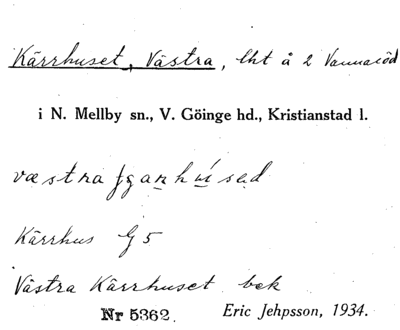 Kärrhuset, Västra, lht å 2 Vannaröd
i N. Mellby sn., V. Göinge hd., Kristianstad l.
Kärrhus G 5
Västra Kärrhuset bek
Nr 5362. Eric Jehpsson, 1934.